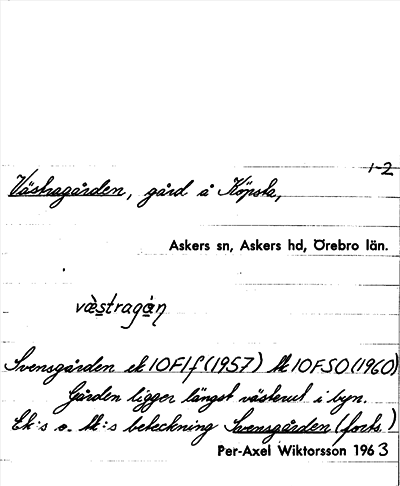 1-2
Västragården, gård å Köpsta,
Askers sn, Askers hd, Örebro län.
væ̀stragáṇ
Svensgården ek 10F1f (1957) tk 10F SO (1960)
Gården ligger längst västerut i byn.
Ek:s o. tk:s beteckning Svensgården (forts.)
Per-Axel Wiktorsson 1963